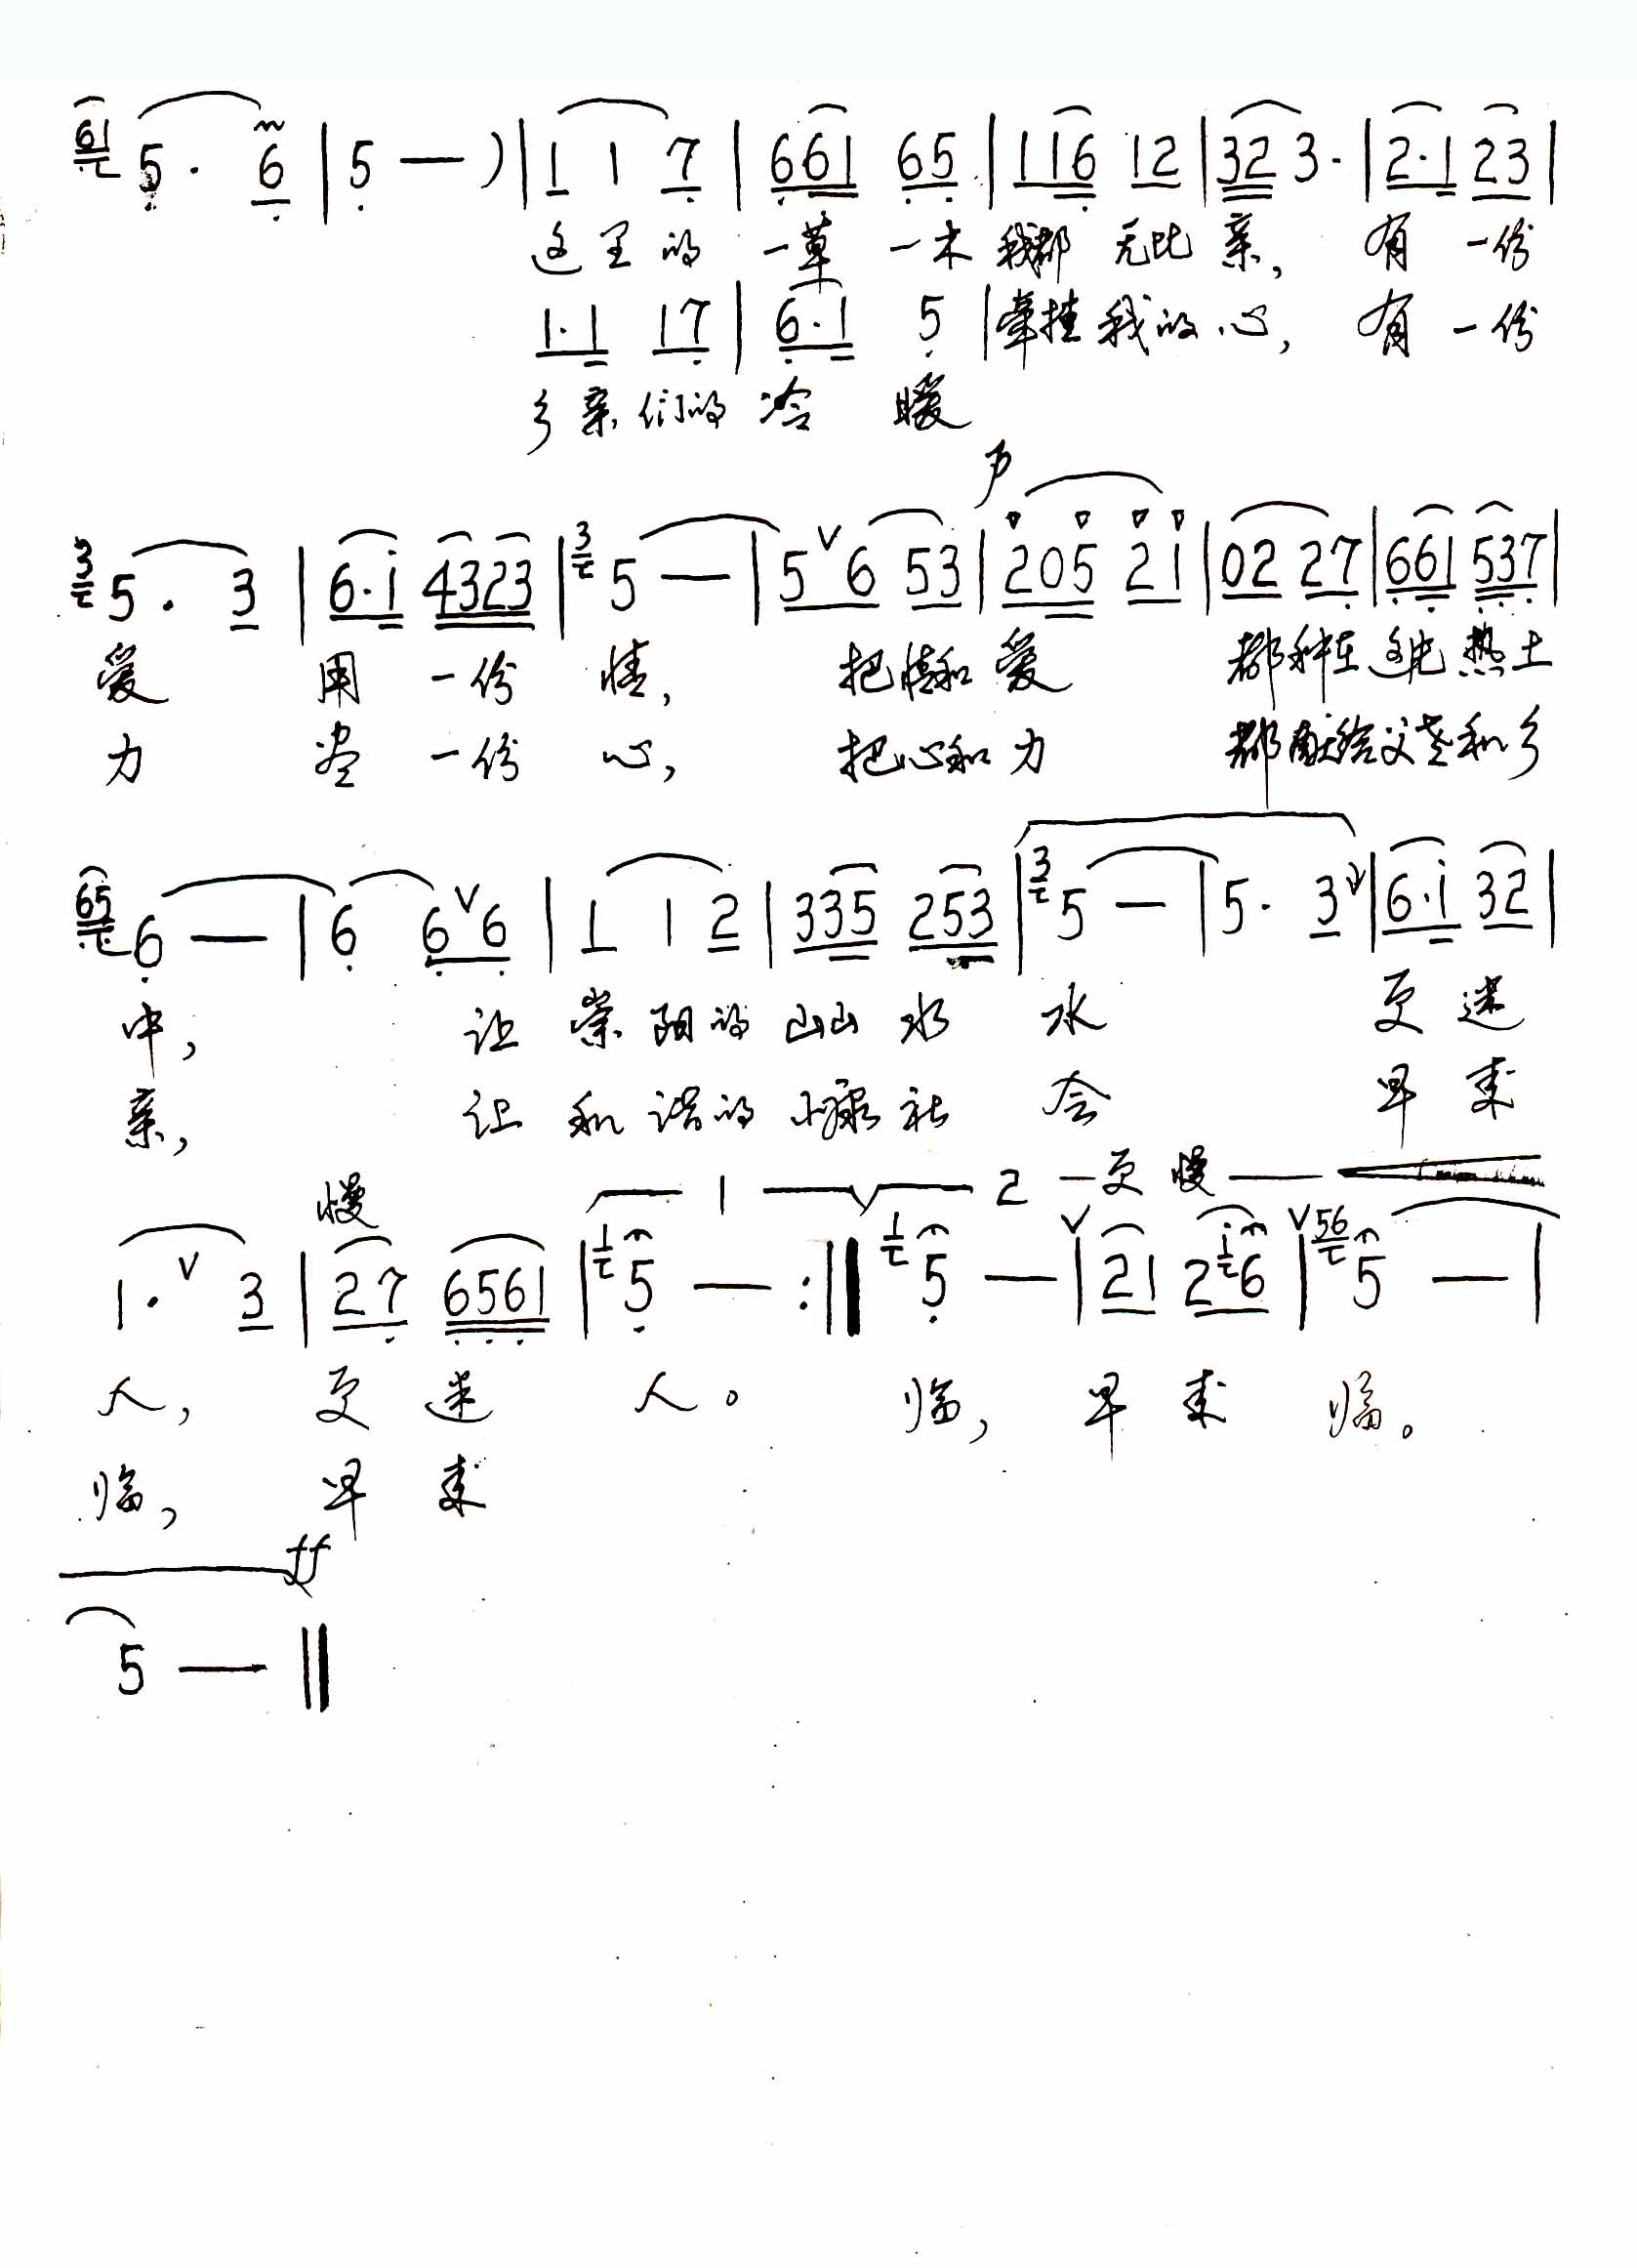 61 5 · 6 | 5 — ) | 1 1 7 | 661 65 | 116 12 | 32 3 · | 2·1 23 |
这里的 一草 一木 我都 无比 亲, 有 一份
1·1 17 | 6·1 5 | 牵挂 我的 心, 有 一份
乡亲们的 冷 暖
3 5 · 3 | 6·i 4323 | 3 5 — | 5 ∨ 6 53 | 205 21 | 02 27 | 661 537 |
爱 用 一份 情, 把情和 爱 都种在 这 热土
力 尽 一份 心, 把心和 力 都献给父老和乡
65 6 — | 6 6 ∨ 6 | 1 1 2 | 335 253 | 3 5 — | 5 · 3 ∨ | 6·i 32 |
中, 让 崇阳的 山山 水 水 更 迷
亲, 让 和谐的 小康 社 会 早 来
慢 1 2 更慢
1 · ∨ 3 | 27 6561 | 1 5 — :‖ 1 5 — ∨ | 21 2 i 6 | ∨ 56 5 — |
人, 更 迷 人。 临, 早 来 临。
临, 早 来
ff
5 — ‖